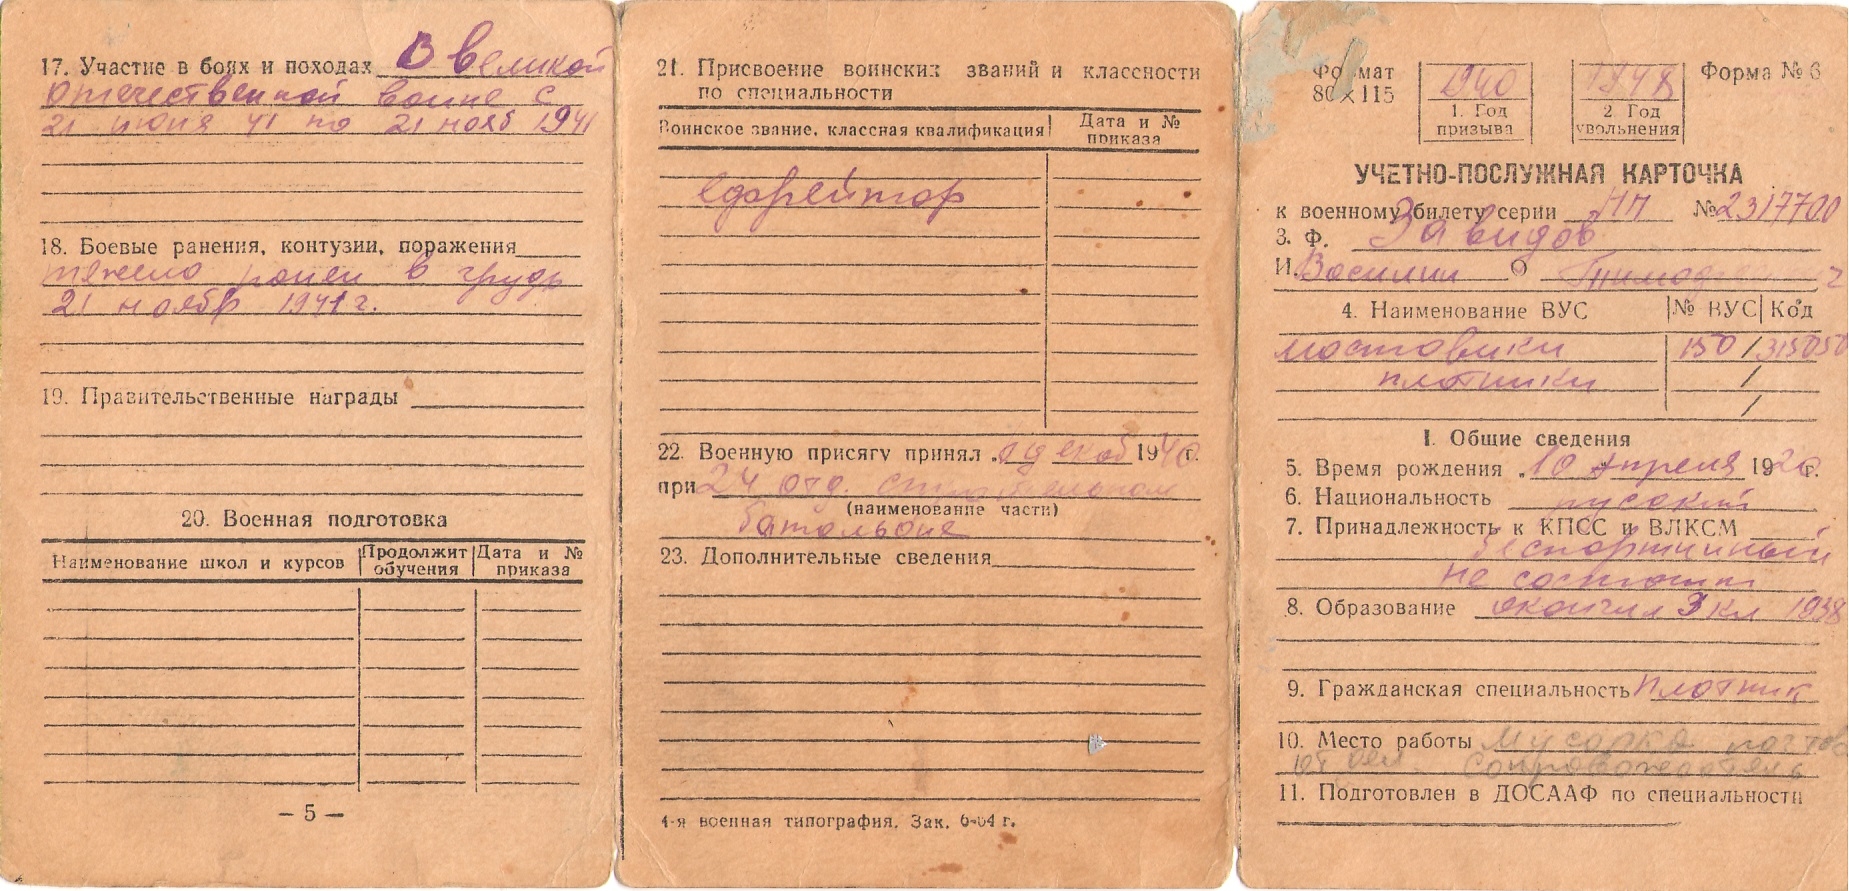 17. Участие в боях и походах В великой
Отечественной воине с
21 июня 41 по 21 нояб 1941
18. Боевые ранения, контузии, поражения
тяжело ранен в грудь
21 ноябр 1941 г.
19. Правительственные награды
20. Военная подготовка
Наименование школ и курсов | Продолжит обучения | Дата и № приказа
– 5 –
21. Присвоение воинских званий и классности
по специальности
Воинское звание, классная квалификация | Дата и № приказа
ефрейтор
22. Военную присягу принял 1940 г.
при 24 отд. строительном
(наименование части)
батальоне
23. Дополнительные сведения
4-я военная типография. Зак. 6-64 г.
Формат
80×115
1940
1. Год
призыва
1948
2. Год
увольнения
Форма № 6
УЧЕТНО-ПОСЛУЖНАЯ КАРТОЧКА
к военному билету серии НП № 2317700
3. Ф. Завидов
И. Василии О Тимоф
4. Наименование ВУС | № ВУС | Код
мостовики 150 / 315050
плотники /
/
I. Общие сведения
5. Время рождения „10 апреля 1920 г.
6. Национальность русский
7. Принадлежность к КПСС и ВЛКСМ
беспартииный
не состоит
8. Образование окончил 3 кл 1938
9. Гражданская специальность плотник
10. Место работы почтов
сопровождатель
11. Подготовлен в ДОСААФ по специальности